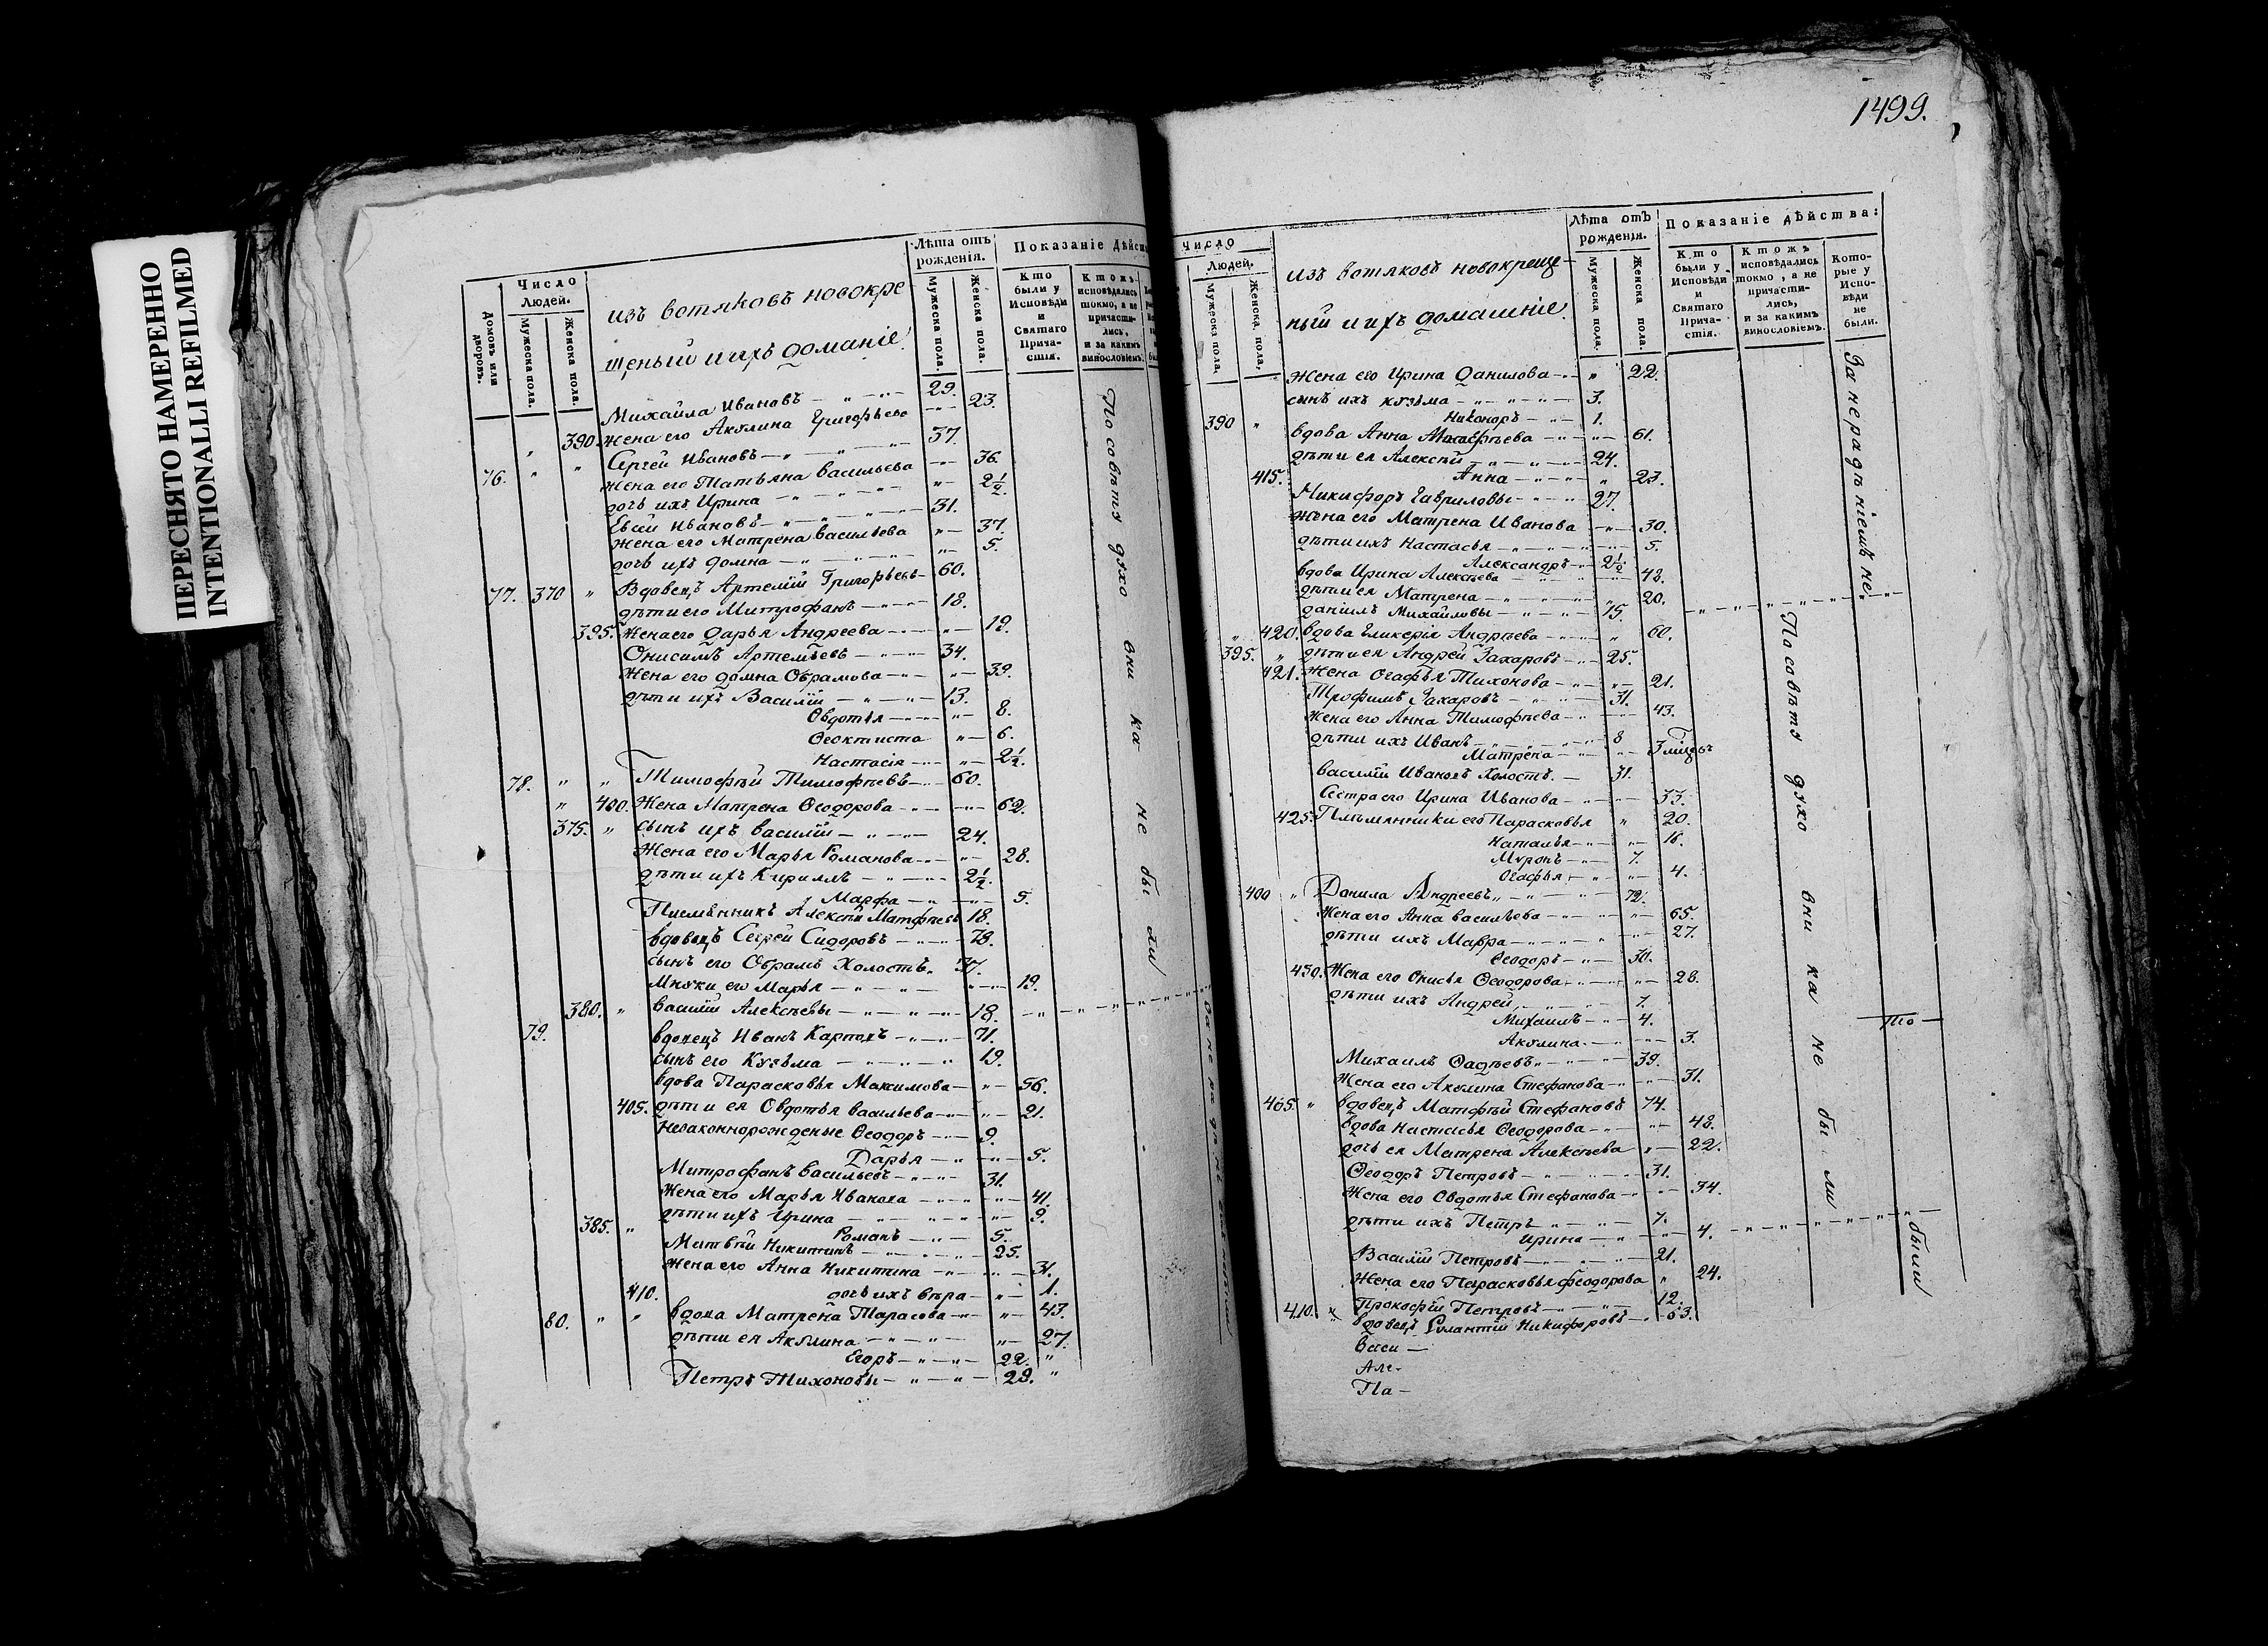 ПЕРЕСНЯТО НАМЕРЕННО
INTENTIONALLI REFILMED
Число
Людей.
Домовъ или дворовъ.
Мужеска пола.
Женска пола.
изъ вотяковъ новокре
щеныи и ихъ доманіе
Лѣта отъ рожденія.
Мужеска пола.
Женска пола.
Показаніе Дѣйст
Кто были у Исповѣди и Святаго Прича-стія.
Ктожъ исповѣдались токмо, а не причасти-лись, и за какимъ винословіемъ.
Михаила Ивановъ 29.
390. Жена его Акулина Григорьева 23.
Сергѣй Ивановъ 37.
76. Жена его Татьяна Васильева 36.
дочь ихъ Ирина 2½.
Евсей Ивановъ 31.
Жена его Матрена Васильева 37.
дочь ихъ Домна 5.
77. 370 Вдовецъ Артемій Григорьевъ 60.
дѣти его Митрофанъ 18.
395. Жена его Дарья Андреева 19.
Онисимъ Артемьевъ 34.
Жена его Домна Обрамова 39.
дѣти ихъ Василій 13.
Овдотья 8.
Ѳеоктиста 6.
Настасія 2½.
78. Тимофѣй Тимофѣевъ 60.
400. Жена Матрена Ѳеодорова 62.
375. сынъ ихъ Василій 24.
Жена его Марья Романова 28.
дѣти ихъ Кириллъ 2½.
Марфа 5.
Племянникъ Алексѣй Матфѣевъ 18.
вдовецъ Сергѣй Сидоровъ 78.
сынъ его Обрамъ Холостъ 37.
Мнуки его Марья 19.
380. Василій Алексѣевы 18.
79. вдовецъ Иванъ Карповъ 71.
сынъ его Кузьма 19.
вдова Парасковья Максимова 56.
405. дѣти ея Овдотья Васильева 21.
Незаконнорожденые Ѳеодоръ 9.
Дарья 5.
Митрофанъ Васильевъ 31.
Жена его Марья Иванова 41.
дѣти ихъ Ирина 9.
385. Романъ 5.
Матвѣй Никитинъ 25.
Жена его Анна Никитина 31.
410. дочь ихъ Вѣра 1.
80. вдова Матрена Тарасова 43.
дѣти ея Акулина 27.
Егоръ 22.
Петръ Тихоновы 29.
По совѣту духо вни ка не бы ли
1499.
Число
Людей.
Мужеска пола.
Женска пола.
изъ вотяковъ новокреще
ныи и ихъ домашніе
Лѣта отъ рожденія.
Мужеска пола.
Женска пола.
Показаніе дѣйства:
Кто были у Исповѣди и Святаго Прича-стія.
Ктожъ исповѣдались токмо, а не причасти-лись, и за какимъ винословіемъ.
Кото-рые у Испо-вѣди не были.
Жена его Ирина Данилова 22.
сынъ ихъ Кузьма 3.
390 Никаноръ 1.
вдова Анна 61.
дѣти ея Алексѣй 24.
415. Анна 23.
Никифоръ Гавриловы 27.
Жена его Матрена Иванова 30.
дѣти ихъ Настасья 5.
Александръ 2½
вдова Ирина Алексѣева 48.
дѣти ея Матрена 20.
Даніилъ Михайловы 15.
420. вдова Гликерія Андрѣева 60.
395. дѣти ея Андрей Захаровъ 25.
421. Жена Огафья Тихонова 21.
Трофимъ Захаровъ 31.
Жена его Анна Тимофѣева 43.
дѣти ихъ Иванъ 8
Матрена 3
Василій Ивановъ Холостъ. 31.
Сестра его Ирина Иванова 33.
425. Племянники его Парасковья 20.
Наталья 16.
Миронъ 7.
Огафья 4.
400 Данила Андреевъ 72.
Жена его Анна Васильева 65.
дѣти ихъ Мавра 27.
Ѳеодоръ 30.
430. Жена его Онисья Ѳеодорова 28.
дѣти ихъ Андрей 7.
Михаилъ 4.
Акулина 3.
Михаилъ Ѳадѣевъ 39.
Жена его Акулина Стефанова 31.
405. вдовецъ Матфѣй Стефановъ 74.
вдова Настасья Ѳеодорова 48.
дочь ея Матрена Алексѣева 22.
Ѳеодоръ Петровъ 31.
Жена его Овдотья Стефанова 34.
дѣти ихъ Петръ 7.
Ирина 4.
Василій Петровъ 21.
Жена его Парасковья Феодорова 24.
Прокофій Петровъ 12.
410. вдовецъ Никифоровъ 63.
Васи
Але
Па
За нерадѣніемъ не
По совѣту духо вни ка не бы ли
то
были